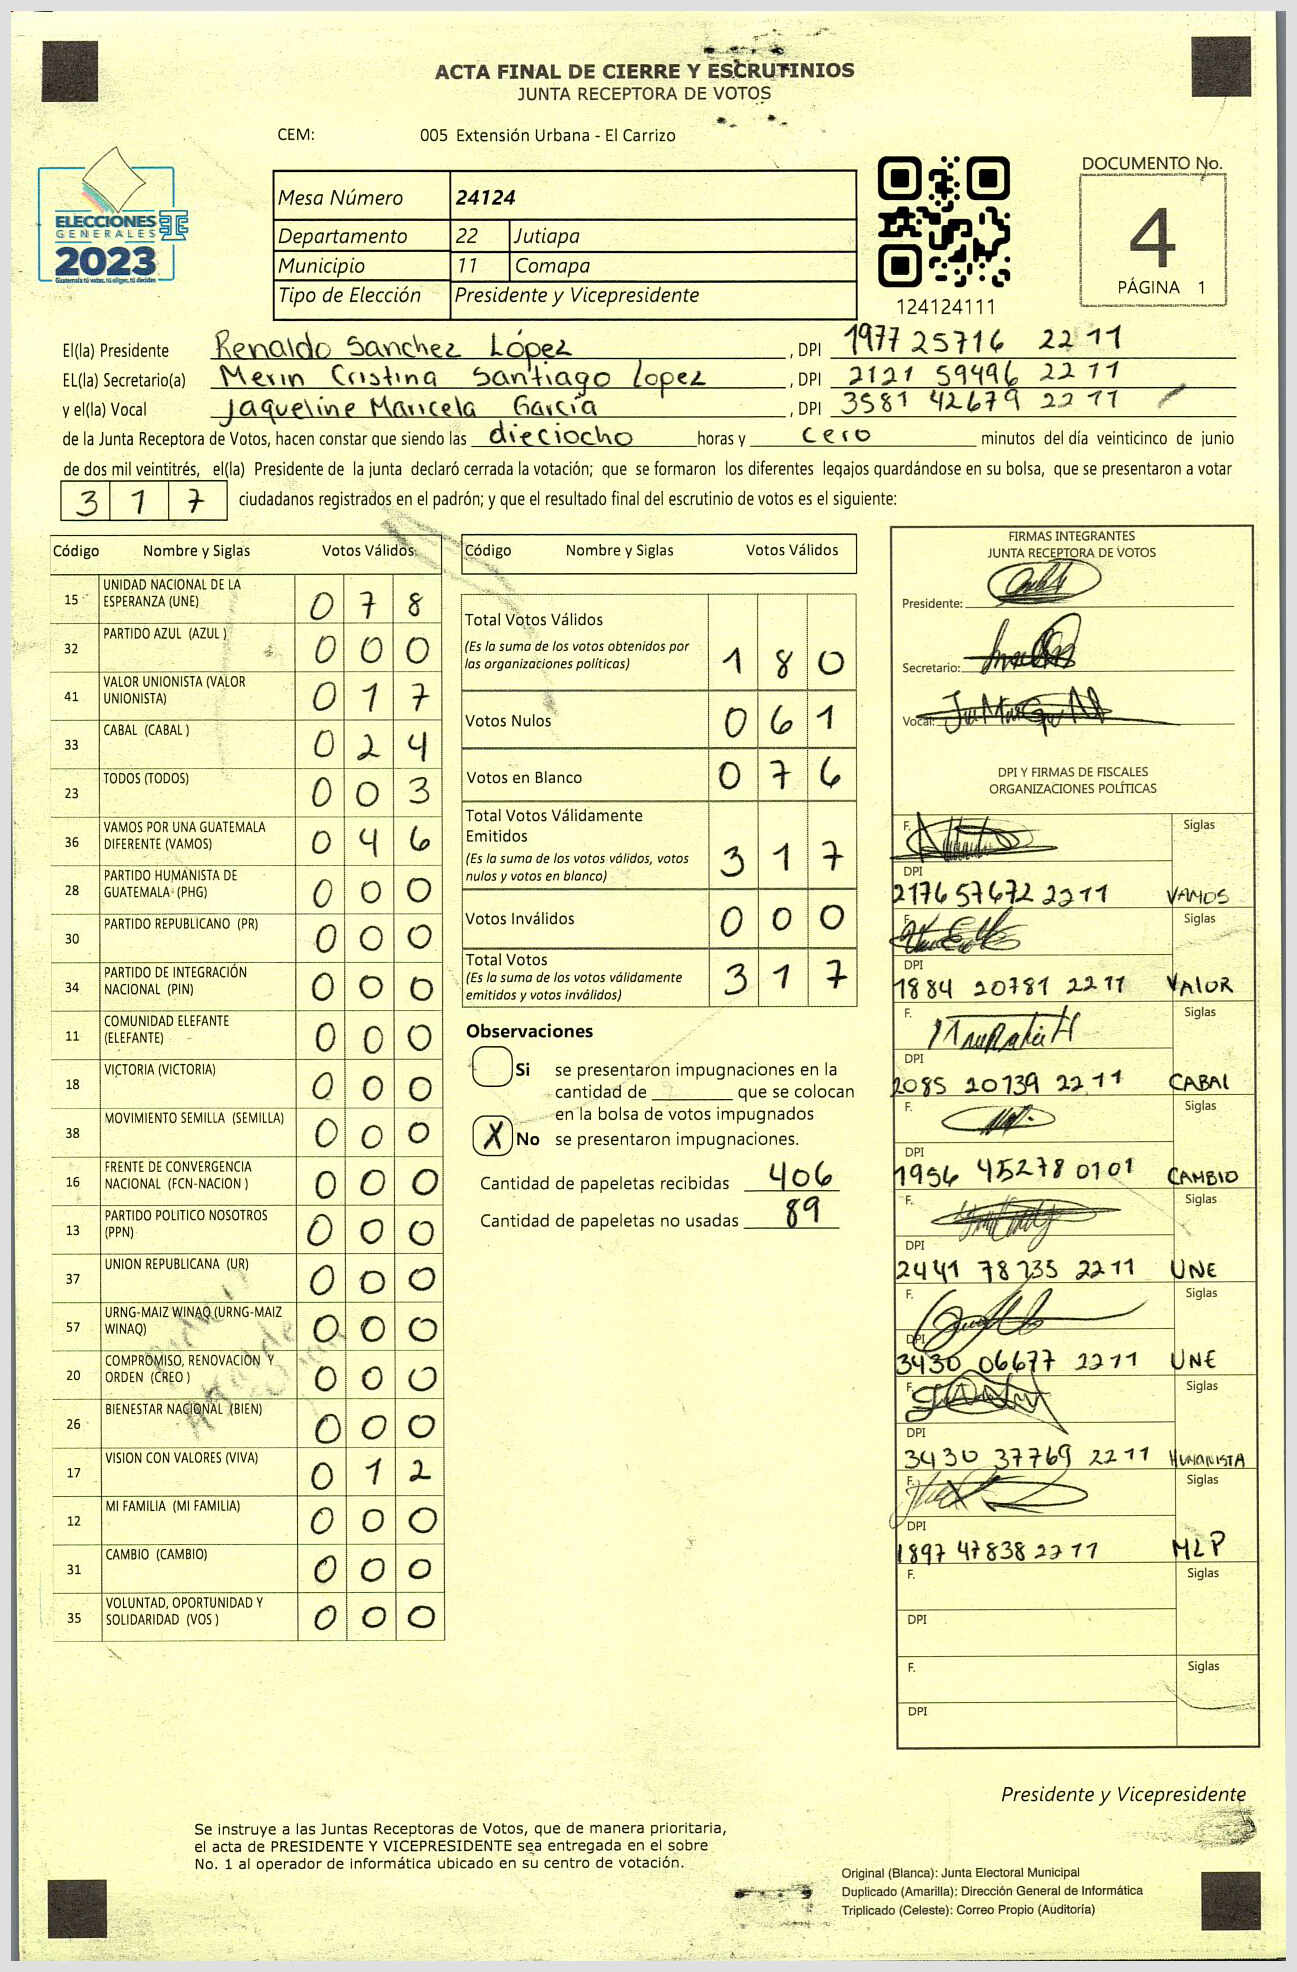 ACTA FINAL DE CIERRE Y ESCRUTINIOS
JUNTA RECEPTORA DE VOTOS
CEM: 005 Extensión Urbana - El Carrizo
ELECCIONES
GENERALES
2023
Guatemala tú votas, tú eliges, tú decides
Mesa Número 24124
Departamento 22 Jutiapa
Municipio 11 Comapa
Tipo de Elección Presidente y Vicepresidente
124124111
DOCUMENTO No.
4
PÁGINA 1
El(la) Presidente Renaldo Sanchez López , DPI 1977 25716 22 11
EL(la) Secretario(a) Merin Cristina Santiago Lopez , DPI 2121 59496 22 11
y el(la) Vocal Jaqueline Maricela García , DPI 3581 42679 22 11
de la Junta Receptora de Votos, hacen constar que siendo las dieciocho horas y cero minutos del día veinticinco de junio
de dos mil veintitrés, el(la) Presidente de la junta declaró cerrada la votación; que se formaron los diferentes legajos guardándose en su bolsa, que se presentaron a votar
3 1 7 ciudadanos registrados en el padrón; y que el resultado final del escrutinio de votos es el siguiente:
Código Nombre y Siglas Votos Válidos
15 UNIDAD NACIONAL DE LA ESPERANZA (UNE) 0 7 8
32 PARTIDO AZUL (AZUL ) 0 0 0
41 VALOR UNIONISTA (VALOR UNIONISTA) 0 1 7
33 CABAL (CABAL ) 0 2 4
23 TODOS (TODOS) 0 0 3
36 VAMOS POR UNA GUATEMALA DIFERENTE (VAMOS) 0 4 6
28 PARTIDO HUMANISTA DE GUATEMALA (PHG) 0 0 0
30 PARTIDO REPUBLICANO (PR) 0 0 0
34 PARTIDO DE INTEGRACIÓN NACIONAL (PIN) 0 0 0
11 COMUNIDAD ELEFANTE (ELEFANTE) 0 0 0
18 VICTORIA (VICTORIA) 0 0 0
38 MOVIMIENTO SEMILLA (SEMILLA) 0 0 0
16 FRENTE DE CONVERGENCIA NACIONAL (FCN-NACION ) 0 0 0
13 PARTIDO POLITICO NOSOTROS (PPN) 0 0 0
37 UNION REPUBLICANA (UR) 0 0 0
57 URNG-MAIZ WINAQ (URNG-MAIZ WINAQ) 0 0 0
20 COMPROMISO, RENOVACION Y ORDEN (CREO ) 0 0 0
26 BIENESTAR NACIONAL (BIEN) 0 0 0
17 VISION CON VALORES (VIVA) 0 1 2
12 MI FAMILIA (MI FAMILIA) 0 0 0
31 CAMBIO (CAMBIO) 0 0 0
35 VOLUNTAD, OPORTUNIDAD Y SOLIDARIDAD (VOS ) 0 0 0
Código Nombre y Siglas Votos Válidos
Total Votos Válidos
(Es la suma de los votos obtenidos por
las organizaciones políticas) 1 8 0
Votos Nulos 0 6 1
Votos en Blanco 0 7 6
Total Votos Válidamente
Emitidos
(Es la suma de los votos válidos, votos
nulos y votos en blanco) 3 1 7
Votos Inválidos 0 0 0
Total Votos
(Es la suma de los votos válidamente
emitidos y votos inválidos) 3 1 7
Observaciones
Si se presentaron impugnaciones en la
cantidad de ________ que se colocan
en la bolsa de votos impugnados
X No se presentaron impugnaciones.
Cantidad de papeletas recibidas 406
Cantidad de papeletas no usadas 89
FIRMAS INTEGRANTES
JUNTA RECEPTORA DE VOTOS
Presidente:
Secretario:
Vocal:
DPI Y FIRMAS DE FISCALES
ORGANIZACIONES POLÍTICAS
F. Siglas
DPI
2176 57672 2211 VAMOS
F. Siglas
DPI
1884 20781 2211 VALOR
F. Siglas
DPI
2085 20739 2211 CABAL
F. Siglas
DPI
1956 45278 0101 CAMBIO
F. Siglas
DPI
2441 78735 2211 UNE
F. Siglas
DPI
3430 06677 2211 UNE
F. Siglas
DPI
3430 37769 2211 HUMANISTA
F. Siglas
DPI
1897 47838 2211 MLP
F. Siglas
DPI
F. Siglas
DPI
Presidente y Vicepresidente
Se instruye a las Juntas Receptoras de Votos, que de manera prioritaria,
el acta de PRESIDENTE Y VICEPRESIDENTE sea entregada en el sobre
No. 1 al operador de informática ubicado en su centro de votación.
Original (Blanca): Junta Electoral Municipal
Duplicado (Amarilla): Dirección General de Informática
Triplicado (Celeste): Correo Propio (Auditoría)